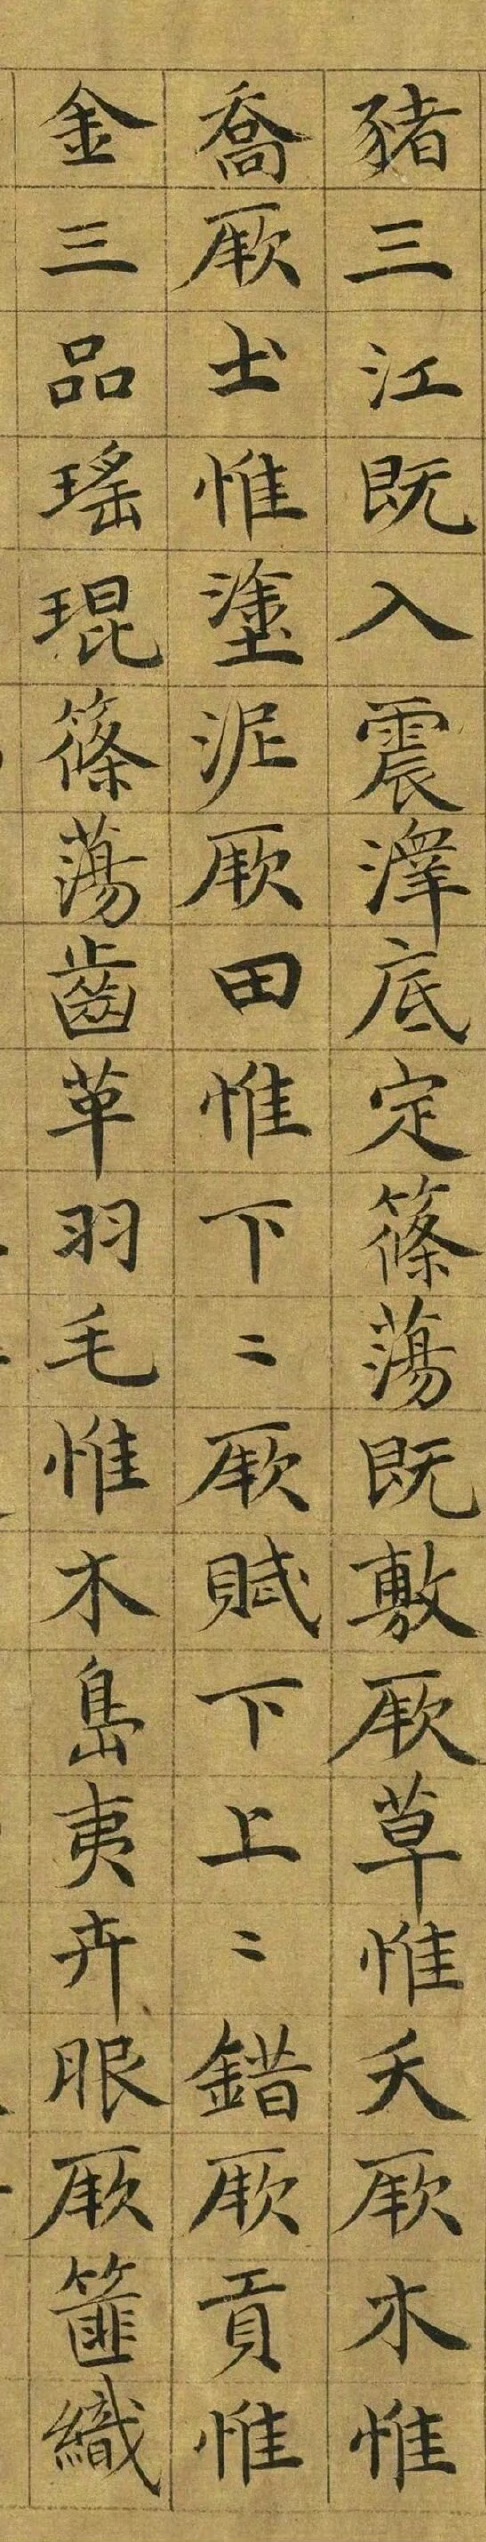 豬三江既入震澤底定篠蕩既敷厥草惟夭厥木惟
喬厥土惟塗泥厥田惟下〻厥賦下上〻錯厥貢惟
金三品瑤琨篠蕩齒革羽毛惟木島夷卉服厥篚織